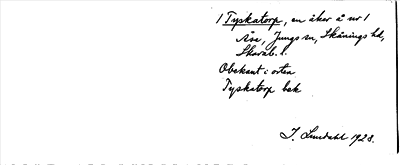 1 Tyskatorp, en åker å nr 1
Åse, Jungs sn, Skånings hd,
Skarab. l.
Obekant i orten
Tyskatorp bek
J. Lundahl 1928.